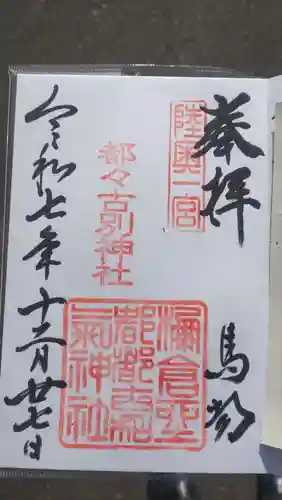 奉拝
馬場
陸奥一宮
都々古別神社
令和七年十二月廿七日